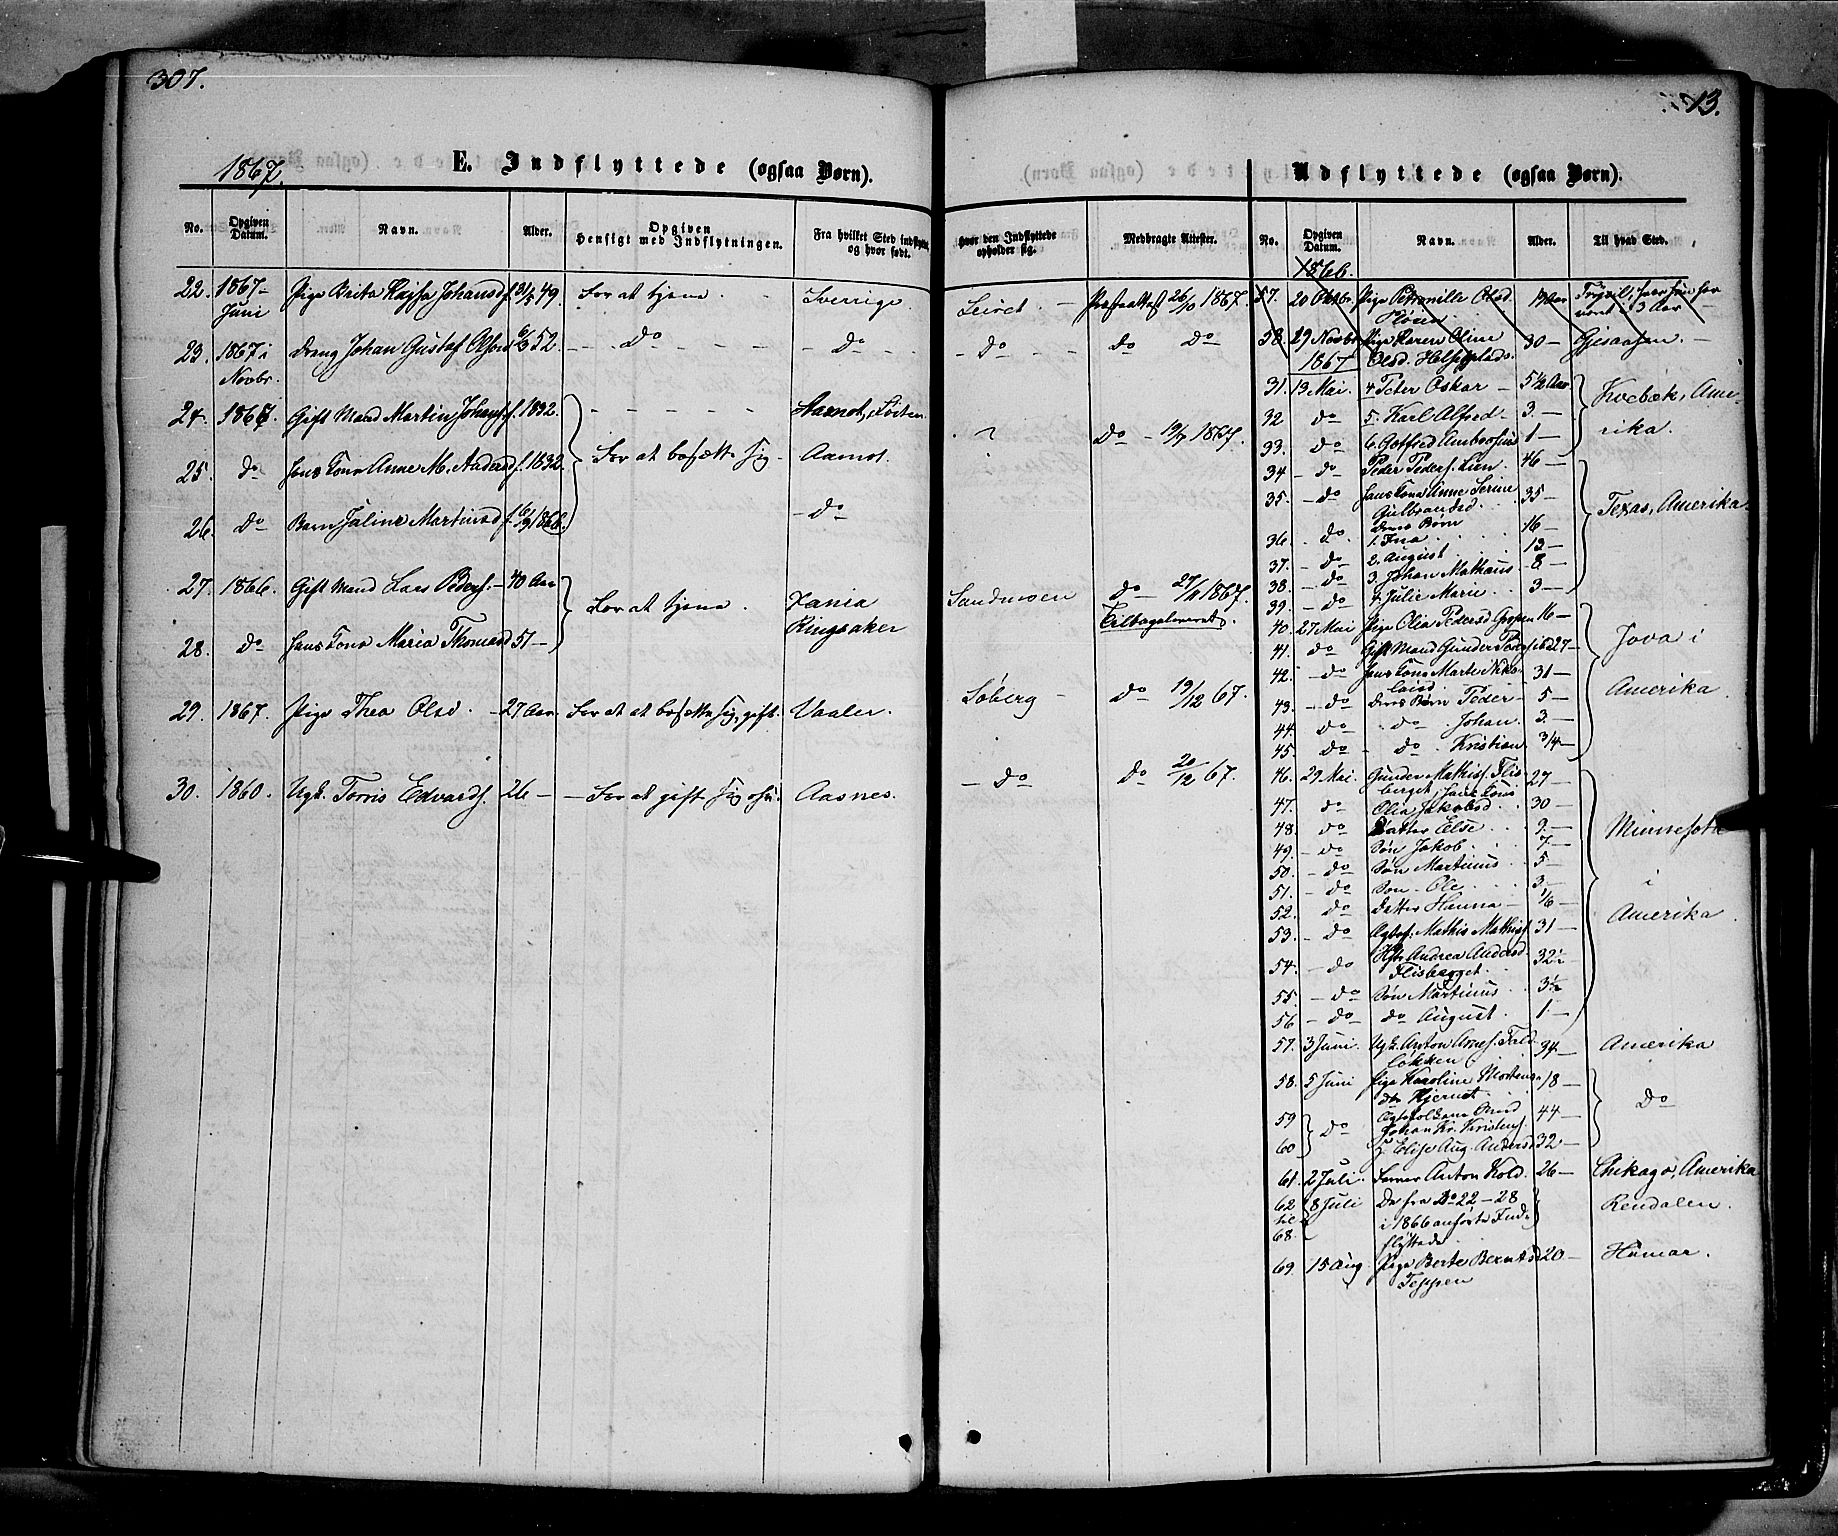 307.
13.
1867.
E. Indflyttede (ogsaa Børn).
Udflyttede (ogsaa Børn).
No. Opgiven Datum. Navn. Alder. Opgiven Hensigt med Indflytningen. Fra hvilket Sted indflyttet og hvor født.
Hvor den Indflyttede opholder sig. Medbragte Attester. No. Opgiven Datum. Navn. Alder. Til hvad Sted.
22. 1867 Juni Pige Brita Kajsa Johansd. f. 31/5 49. For at tjene Sverrige Leiret Præsteattest 26/10 1867.
23. 1867 i Novbr. Dreng Johan Gustaf Olson 6/3 52. Do Do Do Do Do
24. 1867. Gift Mand Martin Johansf. f. 1832. Aamot, Løiten
25. Do Hans Kona Anne M. Andersd f. 1832. For at bosætte sig Aamot. ? Do 19/7 1867.
26. Do Barn Juline Martinsd f. 6/9 1866. Do
27. 1866. Gift Mand Lars Peders. 40 Aar Vania Sandmoen Do 27/11 1867.
28. Do Hans Kona Maria Thomasd 51 For at tjene. Ringsaker Tilbageleveret.
29. 1867. Pige Thea Olsd. 27 Aar For at bosætte sig, gift. Vaaler. Søberg Do 19/12 67.
30. 1860. Ugk. Torris Edvards. 26 For at gifte sig Aasnes. Do Do 20/12 67.
1866.
57. 20 Oktbr. Pige Petronille Olsd. Trysil, hvor hun har været i 3 Aar
58. 29 Novbr Pige Karen Oline Olsd. 30 Gjesaasen.
1867
31. 13 Mai. 4 Peter Oskar 5½ Aar
32 Do 5. Karl Alfred 3. Kvebæk, Amerika.
33. Do 6. Gotfred Ambrosius 1
34 Do Peder Peders. Lien. 46
35. Do Hans Kona Anne Serine Gulbrandsd. 35 Texas, Amerika
36. Do. Deres Børn 1. Ina 16
37. Do 2. August 13
38. Do 3. Johan Mathæus 8
39. Do 4 Julie Marie 3
40. 27 Mai Pige Olia Pedersd 16
41. Do Gift Mand Gunder 27 Jova i
42. Do Hans Kona Marte Nikolaisd 31 Amerika.
43. Do Deres Børn Peder 5
44. Do Do Johan 3.
45. Do Do Kristian ¾
46. 29 Mai. Gunder Mathiss. Flisberget, Hans Kone 27
47. Do Olia Jakobsd. 30
48. Do Datter Else 9. Minnesota
49. Do Søn Jakob. 7.
50. Do Søn Martinus 5
51. Do Søn Ole 3 i
52. Do Datter Hanna 1/6 Amerika.
53. Do Mathis Mathiss. 31
54. Do Andrea Andersd. Flisberget. 32½
55. Do Søn Martinus 3½
56 Do Do August. 1.
57. 3 Juni. Ugk. Anton Arnes. 34 Amerika
58. 5 Juni Pige Karoline 18
59 Do Johan Kr. Kristens. 44 Do
60 Elise Aug. Andersd 32
61. 2 Juli. Anton Kold 26 Chikago, Amerika
62 til 68. 8 Juli De fra No 22-28 i 1866 anførte Indflyttede Rendalen.
69. 15 Aug. Pige Berte Berntsd Teppen 20 Hamar.